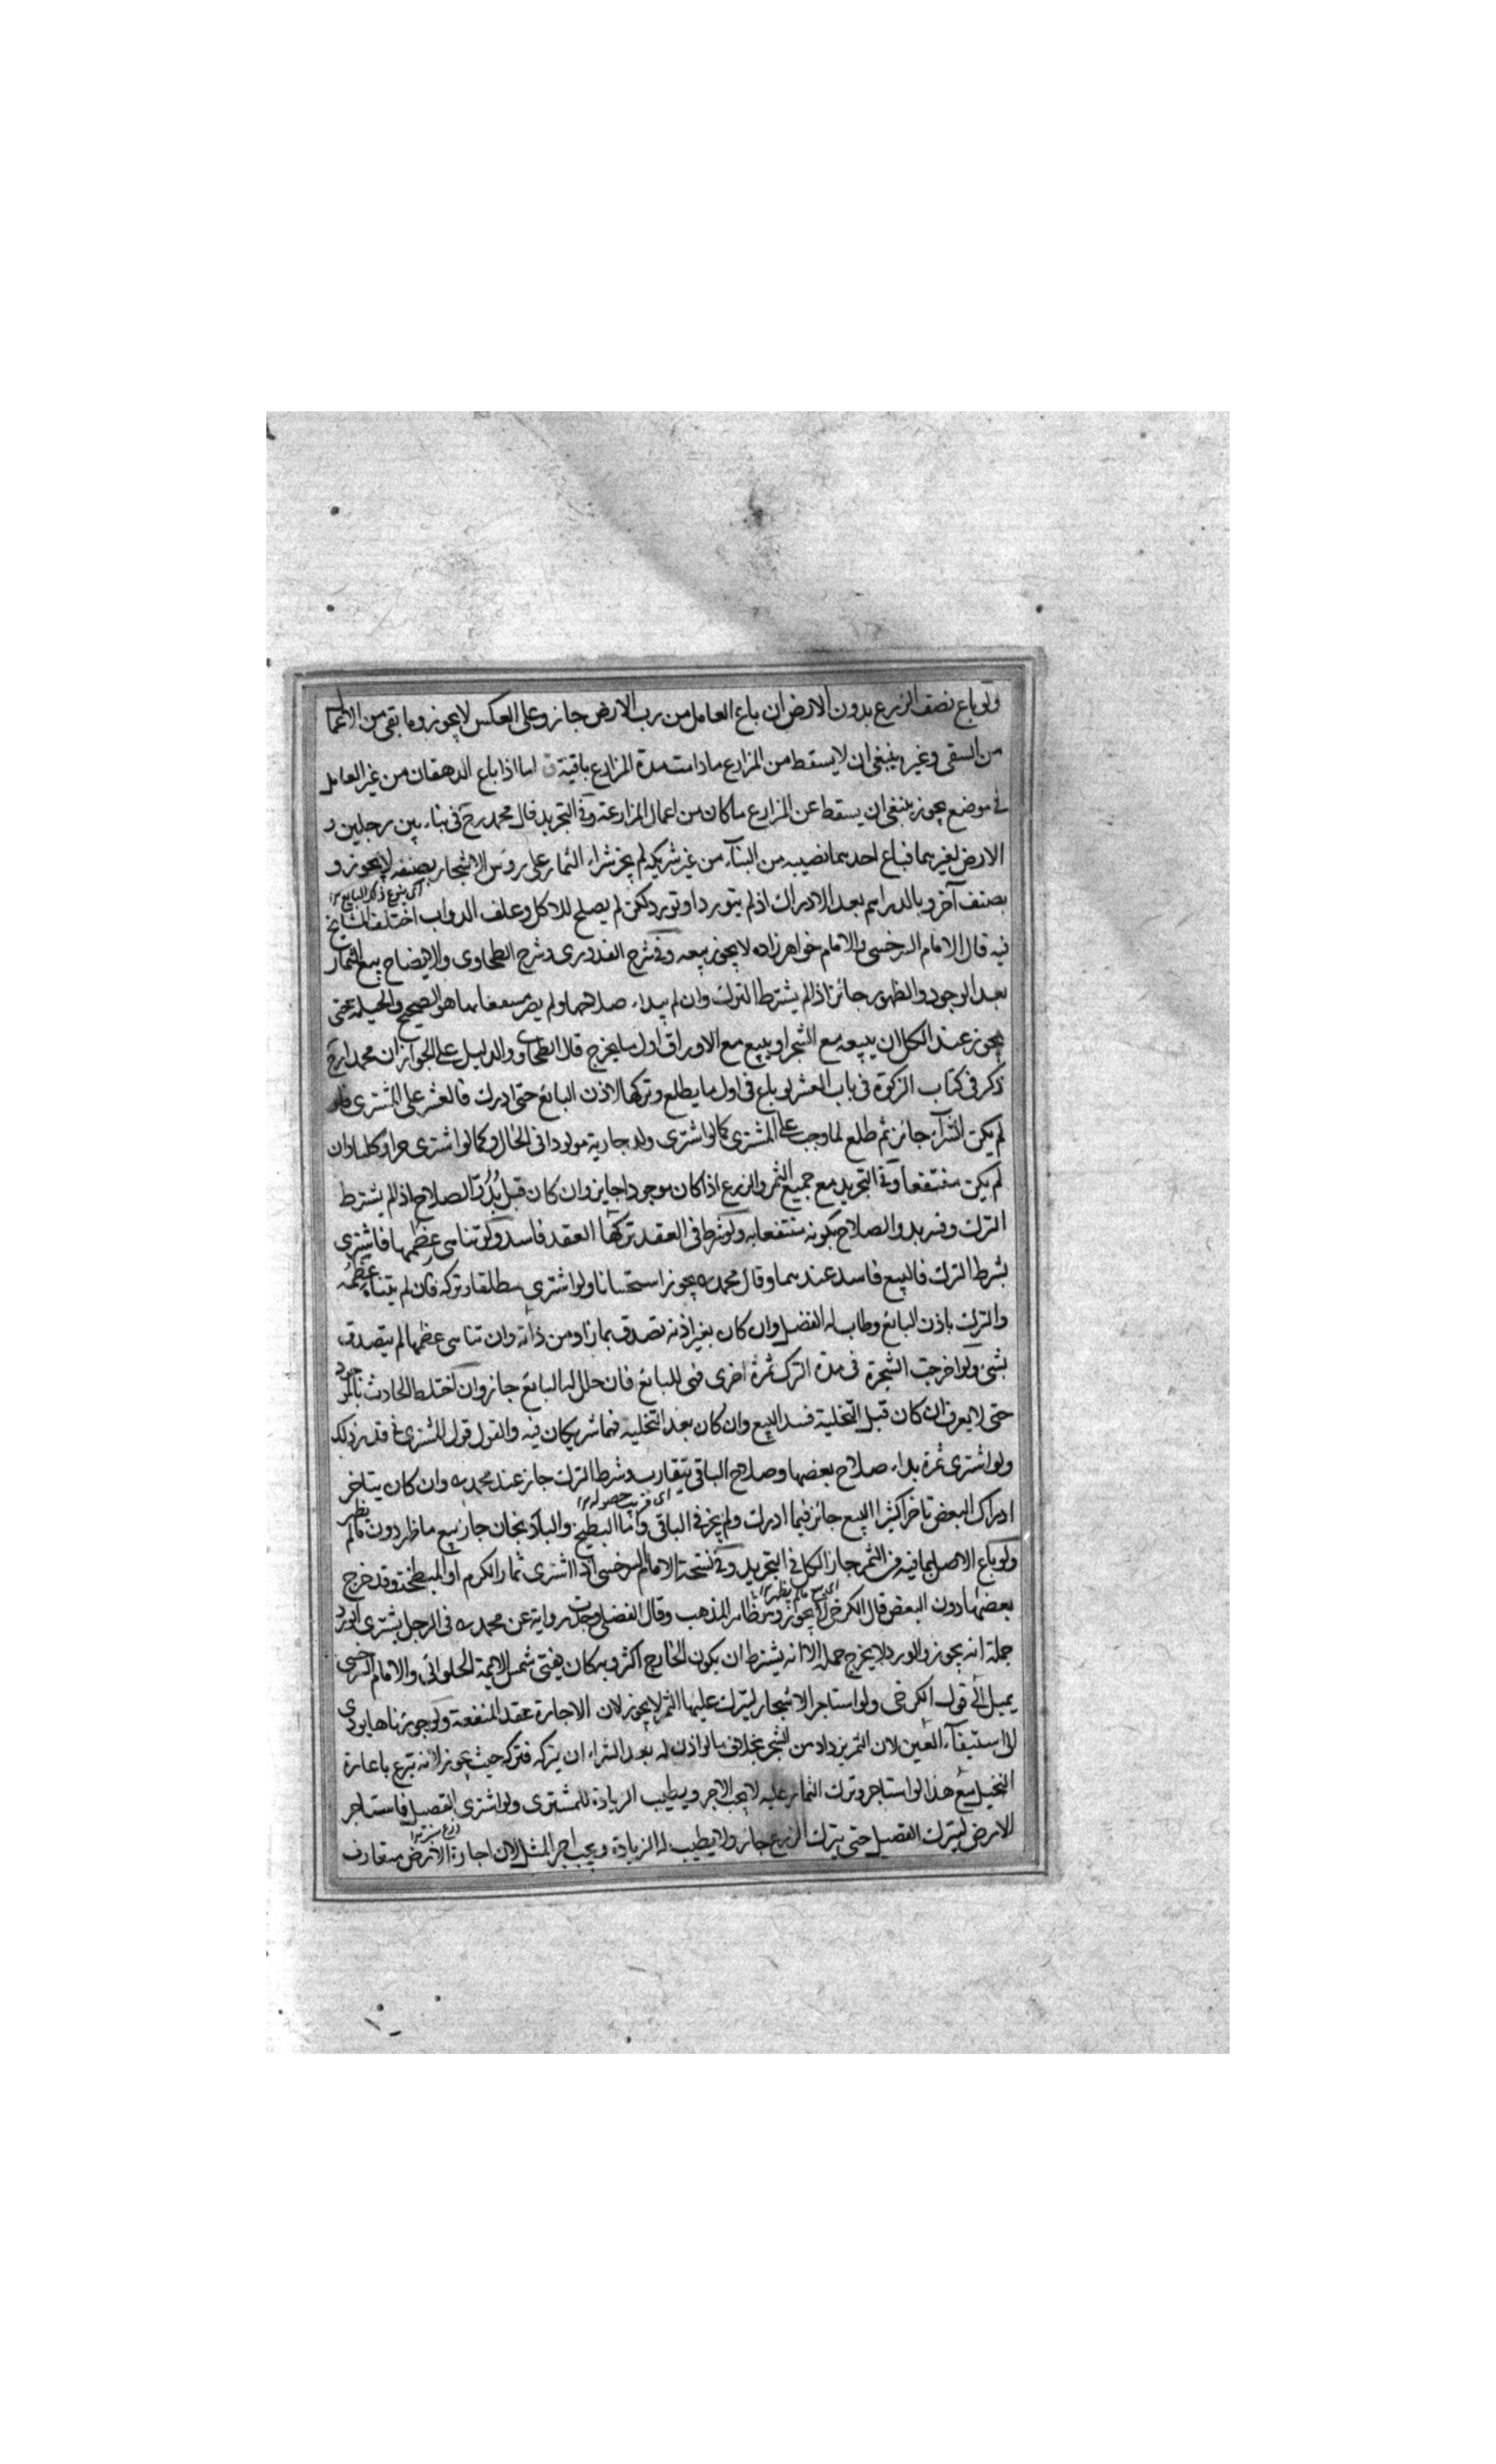 ولو باع نصف الزرع بدون الارض ان باع العامل من رب الارض جاز وعلى العكس لا يجوز وما بقى من الاعما
من السقى وغيره ينبغى ان لا يسقط من المزارع ما دامت مدة المزارع باقية اما اذا باع الدهقان من غير العامل
فى موضع يجوز ينبغى ان يسقط عن المزارع ما كان من اعمال المزارعة وفى التجريد قال محمد رح فى بناء بين رجلين و
الارض لغيرهما فباع احدهما نصيبه من البناء من غير شريكه لم يجز شراء الثمار على رؤس الاشجار بصنفه لا يجوز و
بصنف آخر وبالدراهم بعد الادراك اذ لم يتورد او تورد لكن لم يصلح للاكل وعلف الدواب اختلف المشايخ
فيه قال الامام السرخسى والامام خواهرزاده لا يجوز بيعه وفى شرح القدورى وشرح الطحاوى والايضاح بيع الثمار
بعد الوجود والظهور جائز اذا لم يشترط الترك وان لم يبداء صلاحها ولم يصر منتفعا بها هو الصحيح والحيلة حتى
يجوز عند الكل ان يبيعه مع الشجر او يبيع مع الاوراق اول ما يخرج قال الطحاوى والدليل على الجواز ان محمدا رح
ذكر فى كتاب الزكوة فى باب العشر لو باع فى اول ما يطلع وتركها لاذن البائع حتى ادرك فالعشر على المشترى فلو
لم يكن الشراء جائز ثم طلع لما وجب على المشترى كما لو اشترى ولد جارية مولودا فى الحال وكما لو اشترى جراو كلبا وان
لم يكن منتفعا وفى التجريد مع جميع الثمر والزرع اذا كان موجودا جايز وان كان قبل بدو الصلاح اذا لم يشترط
الترك وفسر بدو الصلاح بكونه منتفعا به ولو شرط فى العقد تركها العقد فاسد ولو تناهى عظمها فاشترى
بشرط الترك فالبيع فاسد عندهما وقال محمد ره يجوز استحسانا ولو اشترى مطلقا وتركه فان لم يتناه عظمه
والترك باذن البائع وطاب له الفضل وان كان بغير اذنه تصدق بما زاد من ذاته وان تناهى عظمها لم يتصدق
بشئ ولو اخرجت الشجرة فى مدة الترك ثمرة اخرى فهى للبائع فان حلل له البائع جاز وان اختلط الحادث بالموجود
حتى لا يعرف ان كان قبل التخلية فسد البيع وان كان بعد التخلية فهما شريكان فيه والقول قول المشترى فى قدر ذلك
ولو اشترى ثمرة بداء صلاح بعضها وصلاح الباقى يتقارب وشرط الترك جاز عند محمد ره وان كان يتاخر
ادراك البعض تاخرا كثيرا البيع جائز فيما ادرك ولم يجز فى الباقى واما البطيخ والباذنجان جاز بيع ما ظهر دون ما لم يظهر
ولو باع الاصل بما فيه من الثمر جاز الكل فى التجريد وفى نسخة الامام السرخسى اذا اشترى ثمار الكرم او المبطخة وقد خرج
بعضها دون البعض قال الكرخى لا يجوز وهو ظاهر المذهب وقال الفضلى وجدت رواية عن محمد ره فى الرجل يشترى الورد
جملة انه يجوز والورد لا يخرج جملة الا انه يشترط ان يكون الخارج اكثر وبه كان يفتى شمس الايمة الحلوائى والامام السرخسى
يميل الى قول الكرخى ولو استاجر الاشجار ليترك عليها الثمر لا يجوز لان الاجارة عقد المنفعة ولو جوزناها يودى
الى استيفاء العين لان الثمر يزداد من الشجر بخلاف ما لو اذن له بعد الشراء ان يتركه فتركه حيث يجوز لانه تبرع باعارة
النخيل مع هذا لو استاجر وترك الثمار عليه لا يجب الاجر ويطيب الزيادة للمشترى ولو اشترى القصيل فاستاجر
الارض ليترك القصيل حتى يترك الزرع جاز ولا يطيب له الزيادة ويجب اجر المثل لان اجارة الارض متعارف